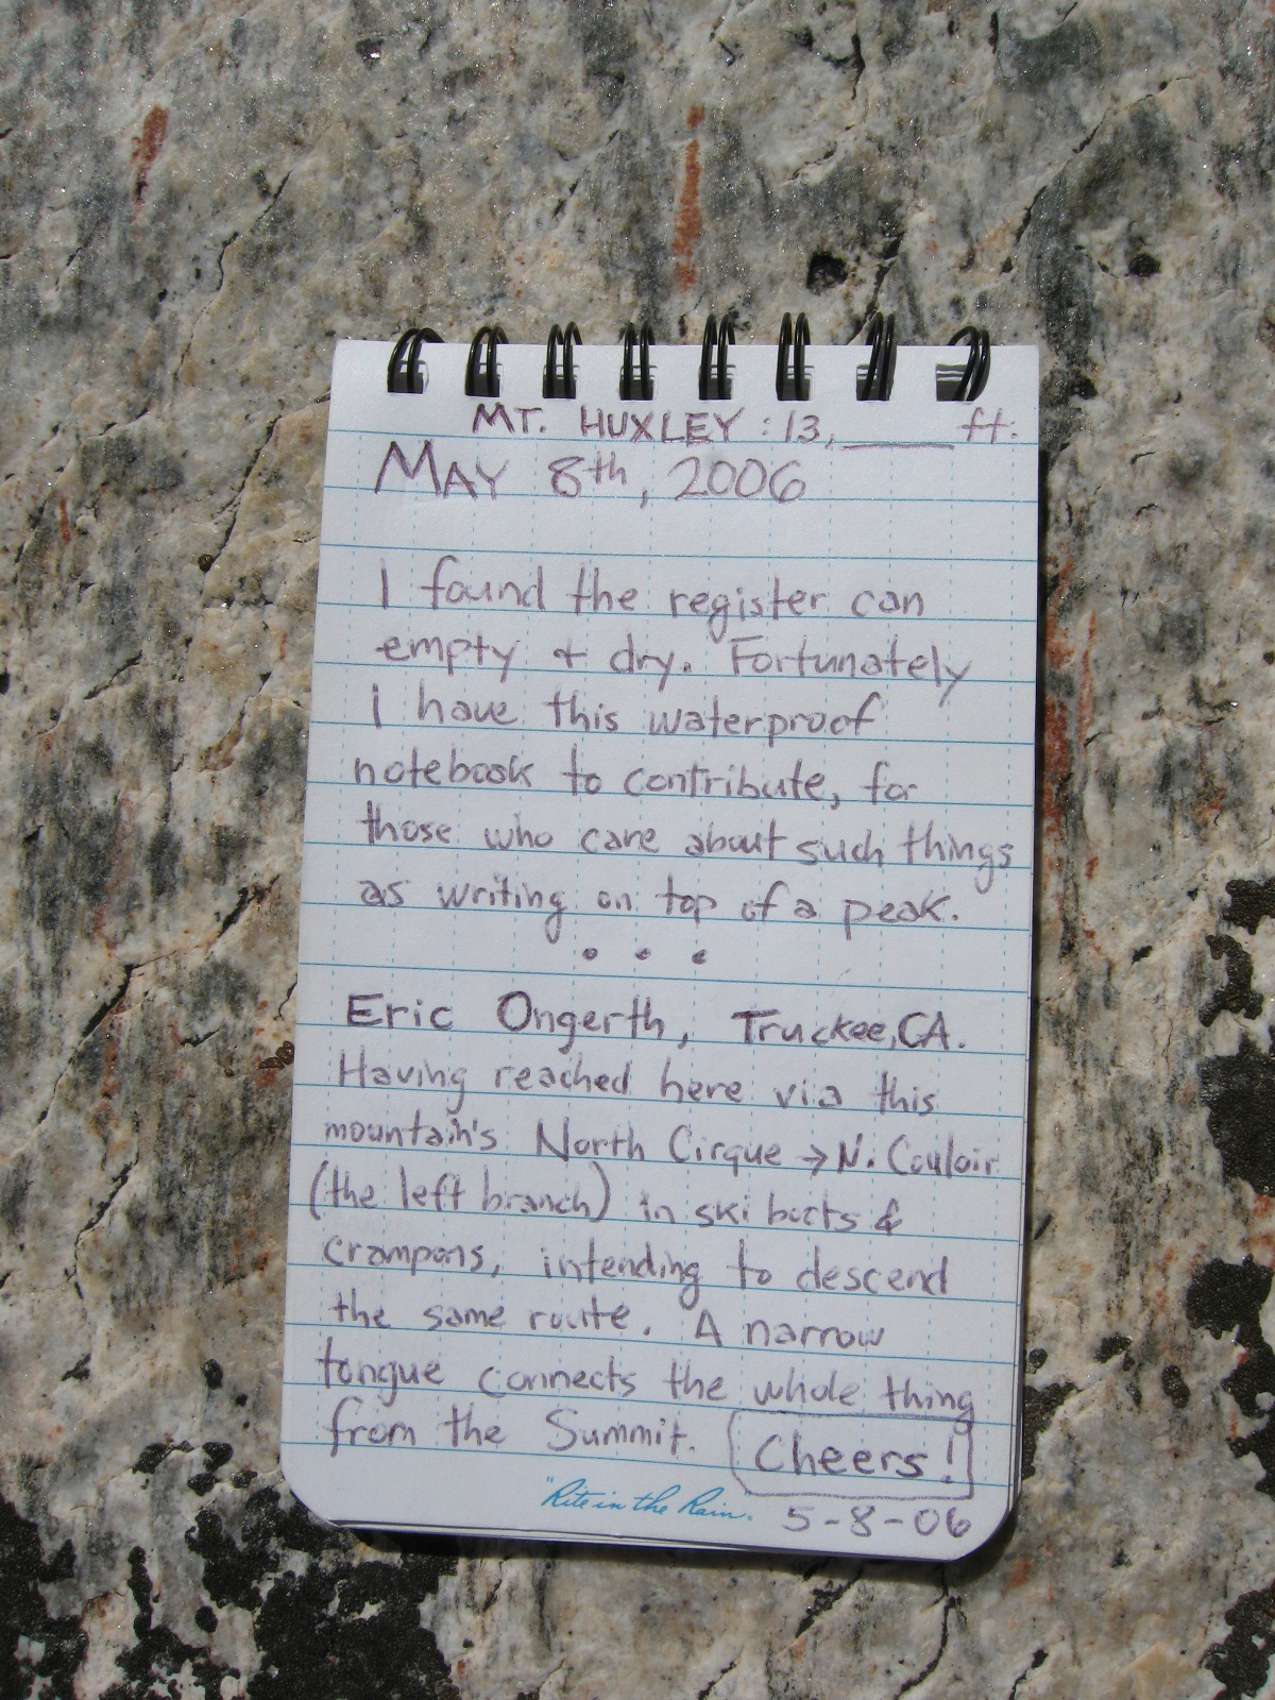 MT. HUXLEY : 13,_____ ft.
MAY 8th, 2006
I found the register can
empty + dry. Fortunately
I have this waterproof
notebook to contribute, for
those who care about such things
as writing on top of a peak.
• • •
Eric Ongerth, Truckee, CA.
Having reached here via this
mountain's North Cirque → N. Couloir
(the left branch) in ski boots &
crampons, intending to descend
the same route. A narrow
tongue connects the whole thing
from the Summit. Cheers!
"Rite in the Rain". 5-8-06